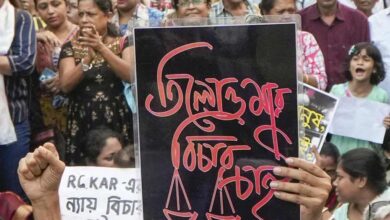 তিলোত্তমার
বিচার
চাই
RG.KAR-এর
ন্যায় বিচার